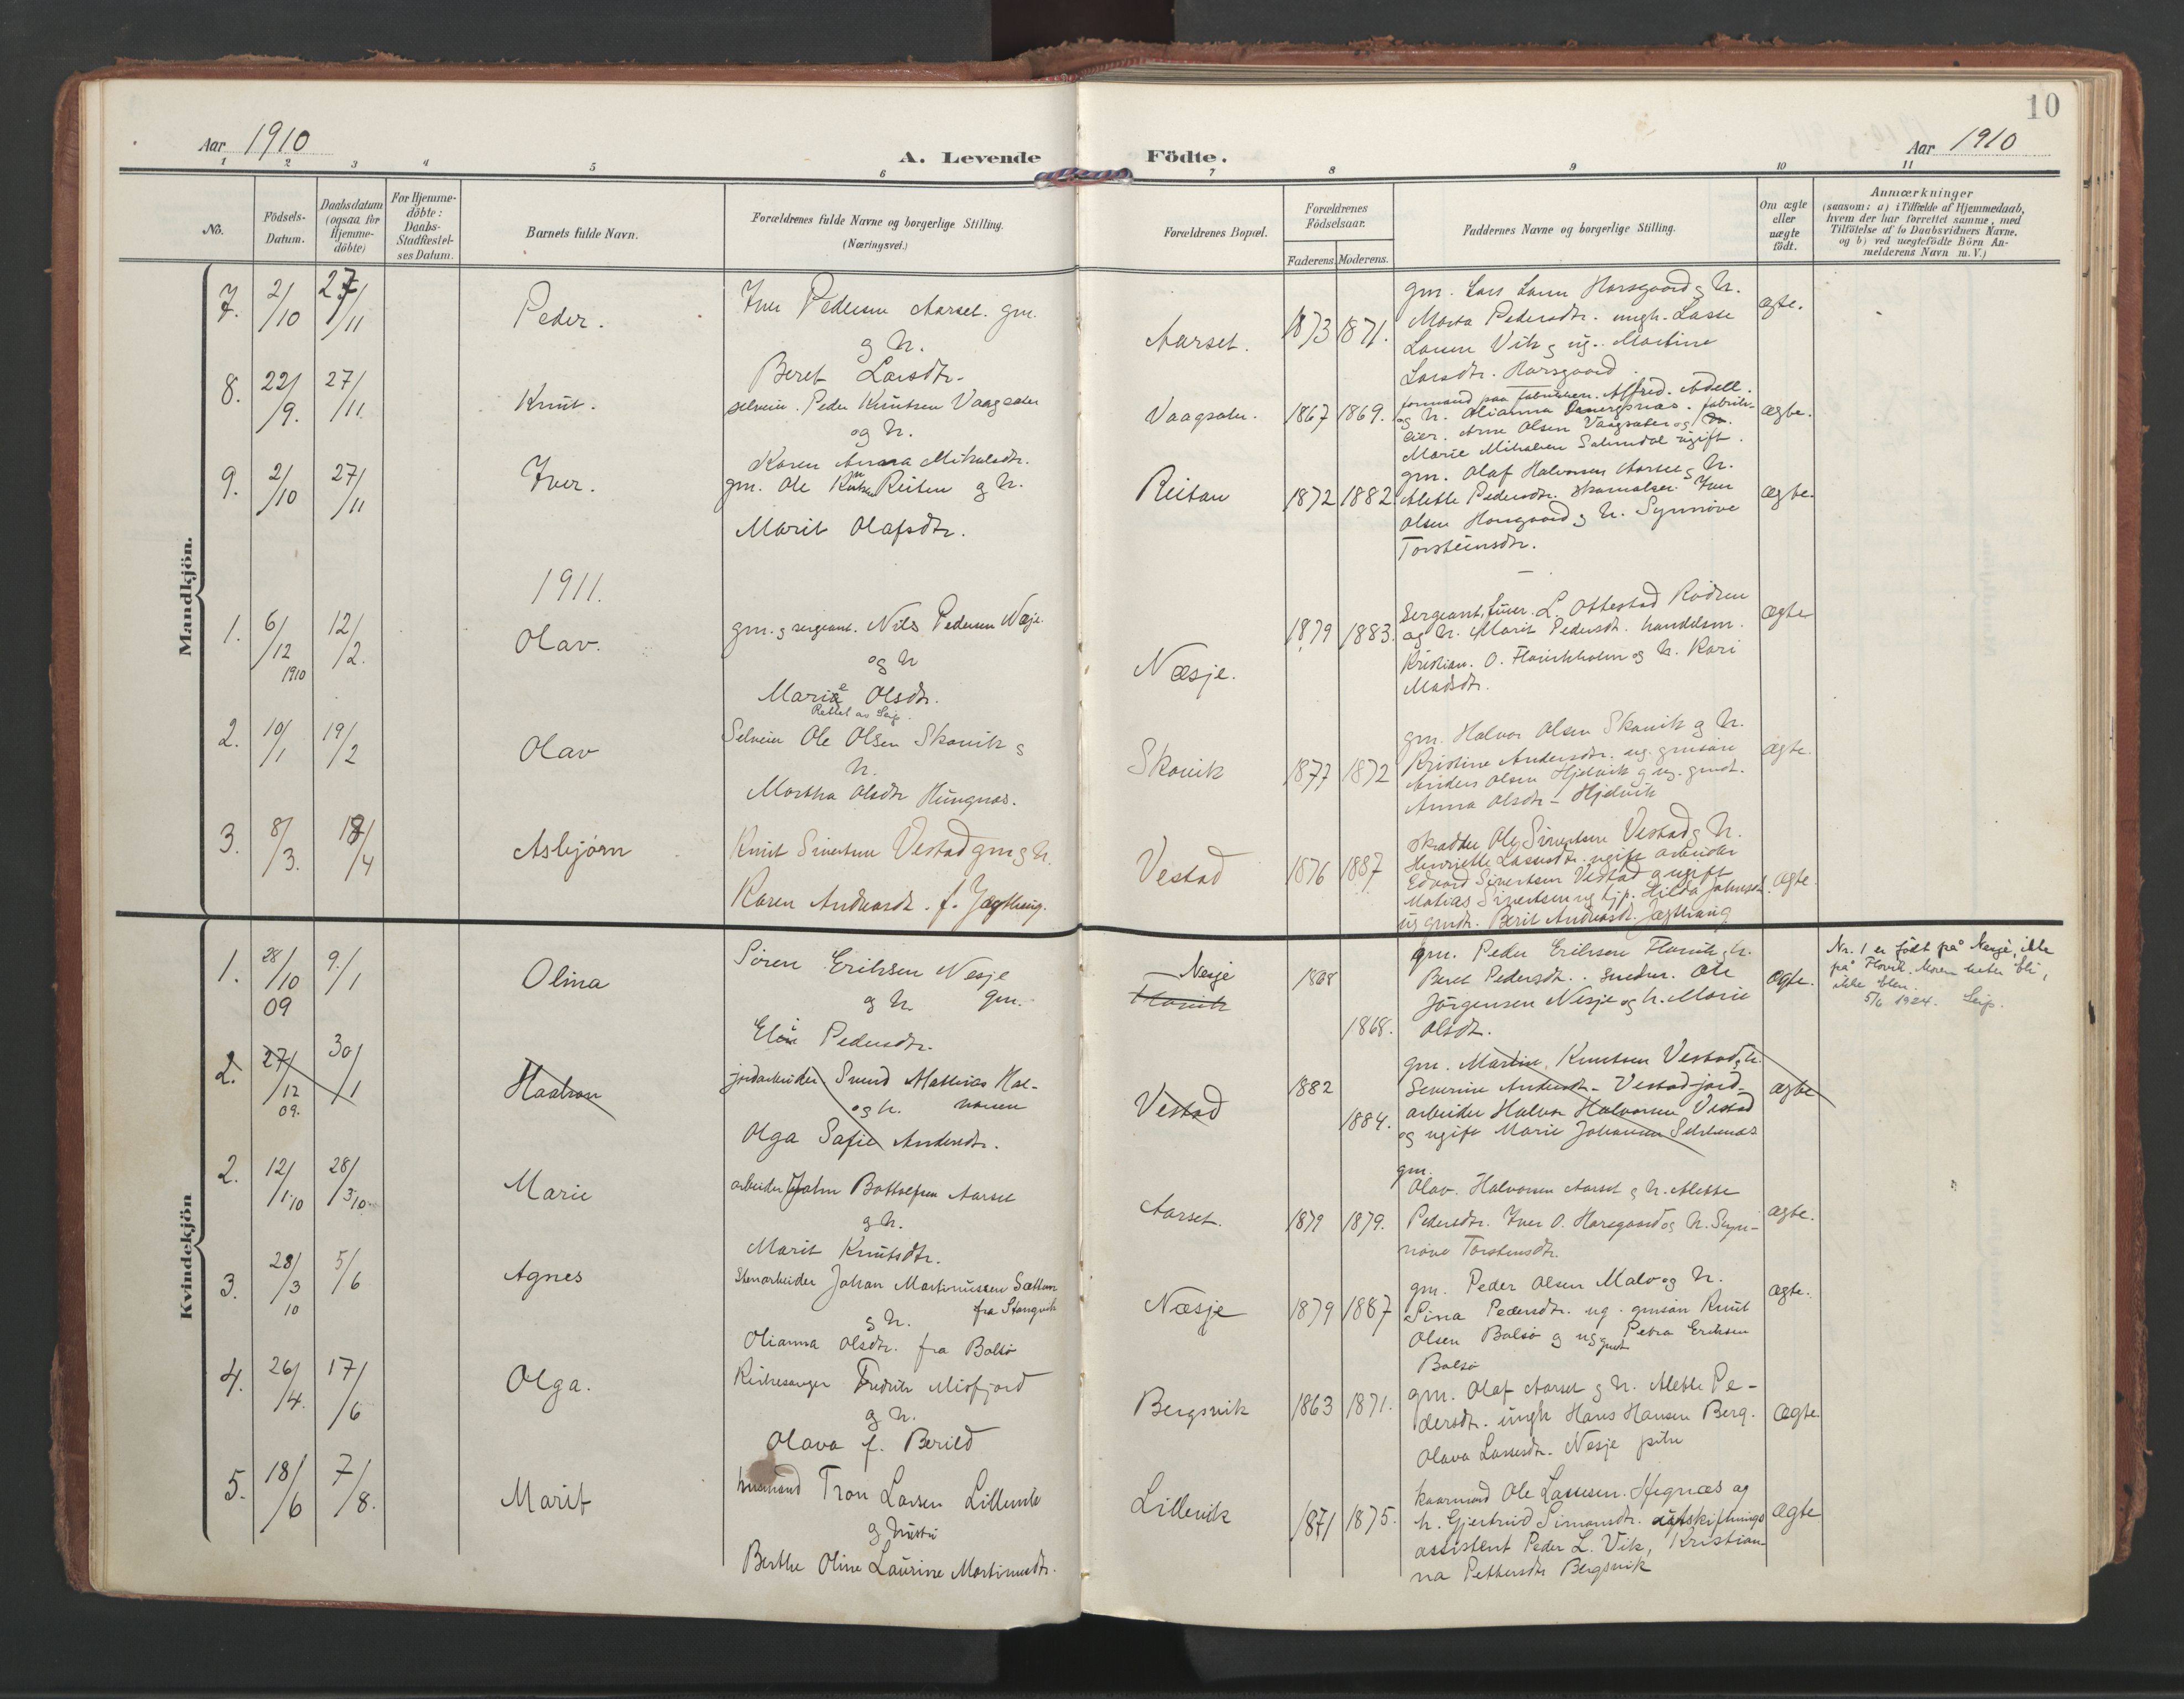 10
Aar 1910
A. Levende Födte.
Aar 1910
1 2 3 4 5 6 7 8 9 10 11
No.
Födsels-Datum.
Daabsdatum (ogsaa for Hjemme-döbte)
For Hjemme-döbte: Daabs-Stadfæstel-ses Datum.
Barnets fulde Navn.
Forældrenes fulde Navne og borgerlige Stilling. (Næringsvei.)
Forældrenes Bopæl.
Forældrenes Födselsaar.
Faderens. Moderens.
Faddernes Navne og borgerlige Stilling.
Om ægte eller uægte födt.
Anmærkninger
(saasom: a) i Tilfælde af Hjemmedaab, hvem der har forrettet samme, med Tilföielse af to Daabsvidners Navne, og b) ved uægtefödte Börn An-melderens Navn m. V.)
Mandkjön.
7. 2/10 27/11 Peder.
Iver Pedersen Aarset. gm.
g h.
Beret Larsdtr.
Aarset. 1873 1871.
gm. Lars Larsen Harsgaard g h.
Marta Pedersdtr. ungk. Lasse
Larsen Vik g ug. Martine
Larsdtr. Harsgaard.
ægte.
8. 22/9. 27/11. Knut.
selveier. Peder Knutsen Vaagsæter
og h.
Karen Anna Mikalsdtr.
Vaagsæter. 1867 1869.
formand paa fabrikken. Alfred. Adell.
og h. Olianna
eier. Arne Olsen Vaagsæter og
Marie Mikalsen Solemdal ugift.
ægte.
9. 2/10 27/11 Iver.
gm. Ole Knutsen Reiten g h.
Marit Olafsdtr.
Reitan 1872 1882.
gm. Olaf Halvorsen Aarset g h.
Mette Pedersdtr. Iver
Olsen Harsgaard g h. Synnöve
Torsteinsdtr.
ægte.
1911.
1. 6/12 1910 12/2. Olav.
gm. g sergeant. Nils Pedersen Nesje
og h
Marie Olsdtr.
Rettet av Seip.
Næsje. 1879 1883.
Sergeant, L. Ottestad Rödven
og h. Marit Pedersdt. handelsm.
Kristian. O. Flovikholm og h. Kari
Madsdtr.
ægte
2. 10/1 19/2 Olav
Selveier Ole Olsen Skovik g
h.
Martha Olsdtr Hungnes.
Skovik 1877 1872
gm. Halvor Olsen Skovik g h.
Kristine Andersdtr. ug. gmsön
Anders Olsen Hjelvik g ug. gmdt.
Anna Olsdtr - Hjelvik
ægte.
3. 8/3. 18/4 Asbjörn
Knut Sivertsen Vestad gm g h.
Karen Andreasdt. f. Jægthaug.
Vestad 1876 1887
skrædder Ole Sivertsen Vestad g h.
Henriette Lassesdtr. ugift arbeider
Edvard Sivertsen Vestad g ugift
Matias Sivertsen ug tjp. Hilda Johnsdt.
ug gmdt. Berit Andreasdt. Jægthaug
ægte.
Kvindekjön
1. 28/10 09 9/1 Olina
Sören Eriksen Nesje
g h. gm.
Eli Pedersdtr.
Nesje
Flovik
1868 1868.
gm. Peder Eriksen Flovik g h.
Beret Pedersdt. smeden. Ole
Jörgensen Nesje og h. Marie
Olsdt.
ægte.
Nr. 1 er født på Nesje, ikke
på Flovik. Moren heter Eli,
ikke Elen.
5/6 1924. Seip.
2. 27/12 09. 30/1 Haakon
jordarbeider Svend Mathias Hal-
og h. vorsen
Olga Sofie Andersdtr.
Vestad 1882 1884.
gm. Martin Knutsen Vestad g h.
Severine Andersdt. - Vestad jord-
arbeider Halvor Halvorsen Vestad
og ugift Marie Johansen
ægte
2. 12/1 10 28/3 10. Marie
arbeider John Bottolfsen Aarset
g h.
Marit Knutsdtr.
Aarset. 1879 1879.
gm.
Olav. Halvorsen Aarset g h. Mette
Pedersdtr. Iver O. Harsgaard og h. Syn-
növe Torsteinsdtr.
ægte.
3. 28/3 10 5/6 Agnes
Stenarbeider Johan Martinussen Sættem
fra Stangvik
g h.
Olianna Olsdtr. fra Bolsö
Næsje 1879 1887
gm. Peder Olsen Malo og h.
Sina Pedersdtr. ug. gmsön Knut
Olsen Bolsö g ug gmdt Petra Eriksen
Bolsö
ægte.
4. 26/4. 17/6 Olga.
Kirkesanger Fredrik Misfjord
g h.
Olava f. Berild
Bergsvik 1863 1871.
gm. Olaf Aarset g h. Mette Pe-
dersdtr. ungk Hans Hansen Berg.
Olava Lassesdtr. Nesje pike
ægte.
5. 18/6 7/8. Marit
husmand Tron Larsen Lillevik
g hustru
Berthe Oline Laurine Martinusdtr.
Lillevik 1871 1875.
kaarmand Ole Lassesen. Hegnæs og
h. Gjertrud Simonsdtr. utskiftnings
assistent Peder L. Vik, Kristian-
na Pettersdtr Bergsvik
ægte